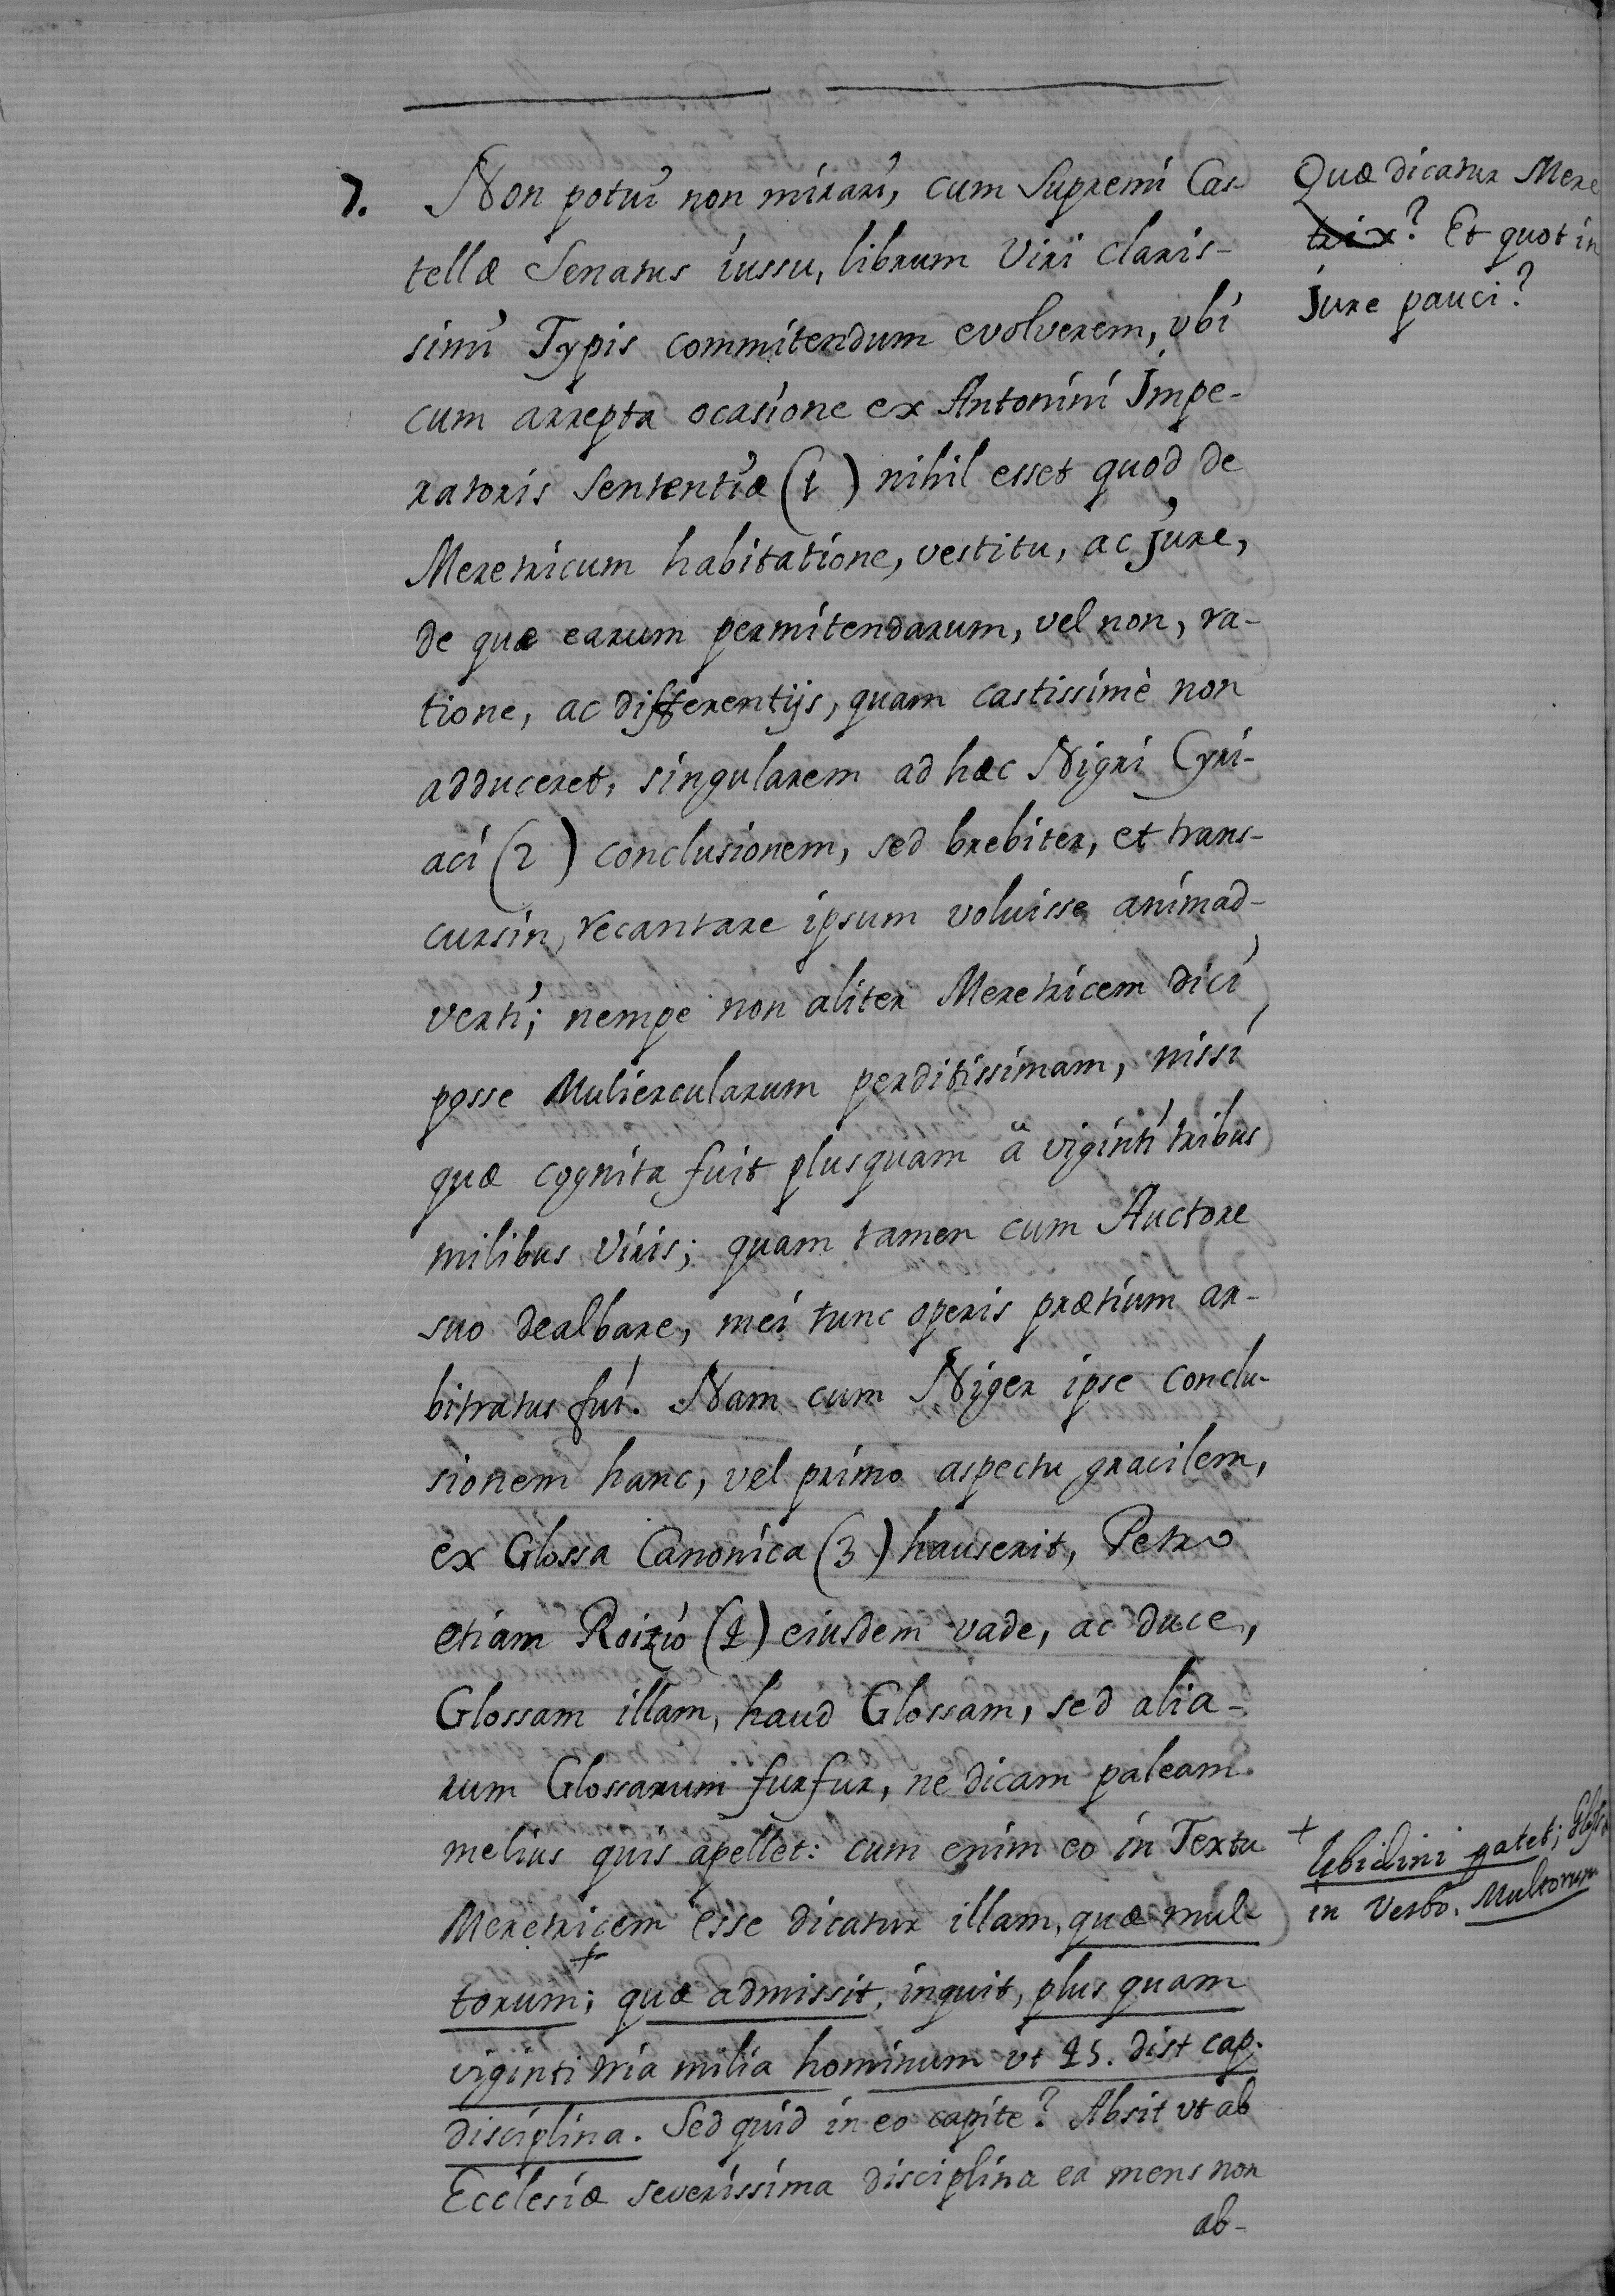 7. Non potui non mirari, cum Supremi Cas-
tellæ Senatus iussu, librum Viri claris-
simi Typis commitendum evolverem, vbi
cum arrepta ocasione ex Antonini Impe-
ratoris Sententia (1) nihil esset quod de
Meretricum habitatione, vestitu, ac jure,
de quæ earum permitendarum, vel non, ra-
tione, ac differentijs, quam castissimè non
adduceret, singularem ad hæc Nigri Cyri-
aci (2) conclusionem, sed brebiter, et trans-
cursin, recantare ipsum voluisse animad-
verti; nempe non aliter Meretricem dici
posse Muliercularum perditissimam, nissi
quæ cognita fuit plusquam â viginti tribus
milibus viris; quam tamen cum Auctore
suo dealbare, mei tunc operis prætium ar-
bitratus fui. Nam cum Niger ipse conclu-
sionem hanc, vel primo aspectu gracilem,
ex Glossa Canonica (3) hauserit, Petro
etiam Roizio (4) eiusdem vade, ac duce,
Glossam illam, haud Glossam, sed alia-
rum Glossarum furfur, ne dicam paleam
melius quis apellet: cum enim eo in Textu
Meretricem esse dicatur illam, quæ mul-
torum +; quæ admissit, inquit, plus quam
viginti tria milia hominum vt 45. dist cap.
disciplina. Sed quid in eo capite? Absit vt ab
Ecclesiæ severissima disciplina ea mens non
ab-
Quæ dicatur Mere
trix? Et quot in
jure pauci?
+ libidini patet; Gloss
in Verbo. Multorum